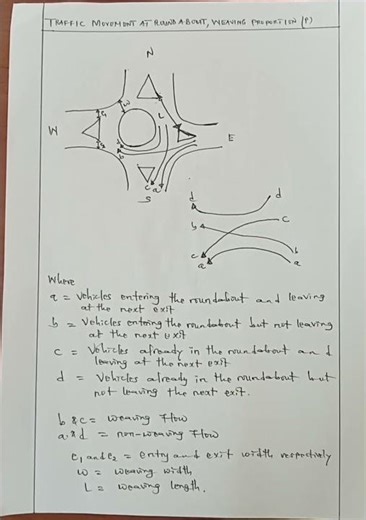 TRAFFIC MOVEMENT AT ROUND ABOUT, WEAVING PROPORTION (P)
N
W
E
S
w
L
e
b
c
a
d
d
c
b
b
c
a
a
Where
a = Vehicles entering the roundabout and leaving
at the next exit
b = Vehicles entering the roundabout but not leaving
at the next exit
c = Vehicles already in the roundabout and
leaving at the next exit
d = Vehicles already in the roundabout but
not leaving the next exit.
b & c = weaving Flow
a & d = non-weaving Flow
e1 and e2 = entry and exit width respectively
W = weaving width
L = weaving length.